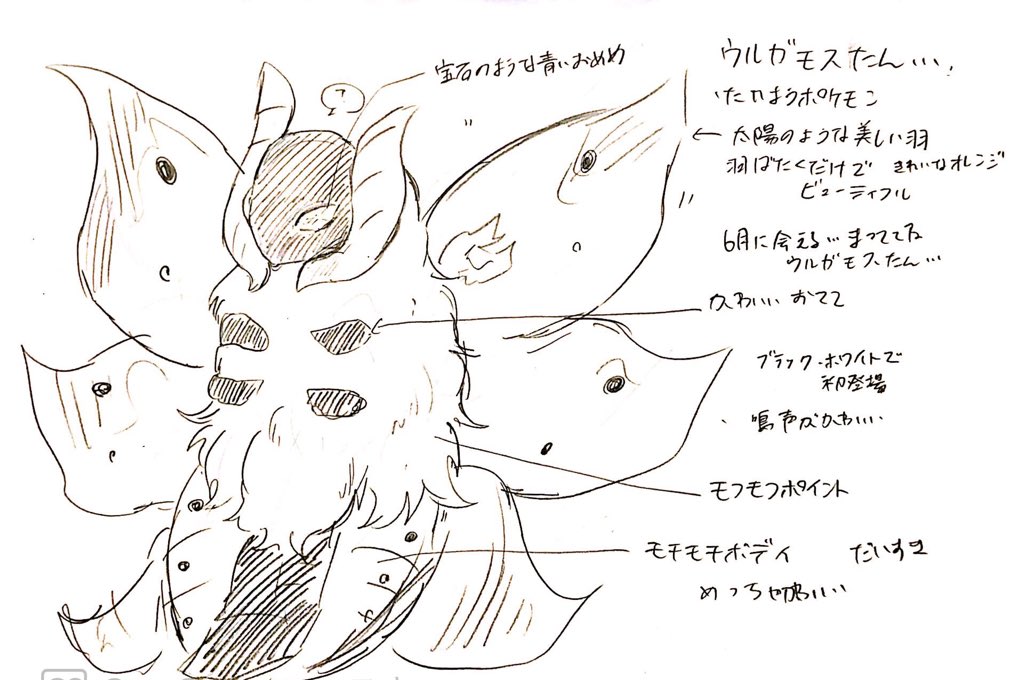 宝石のような青いおめめ
?
ウルガモスたん…
たいようポケモン
← 太陽のような美しい羽
羽ばたくだけで きれいなオレンジ
ビューティフル
6月に会える… まっててな
ウルガモスたん…
かわいい おてて
ブラック・ホワイトで
初登場
鳴声がかわいい
モフモフポイント
モチモチボディ だいすき
めっちゃかわいい